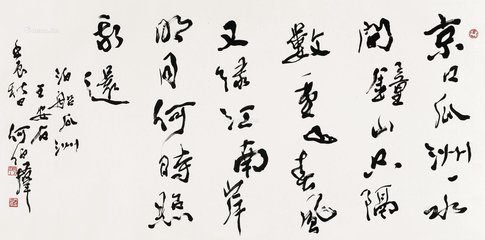 京口瓜洲一水
間鐘山只隔
數重山春風
又綠江南岸
明月何時照
我還
泊船瓜洲
王安石
壬辰秋何